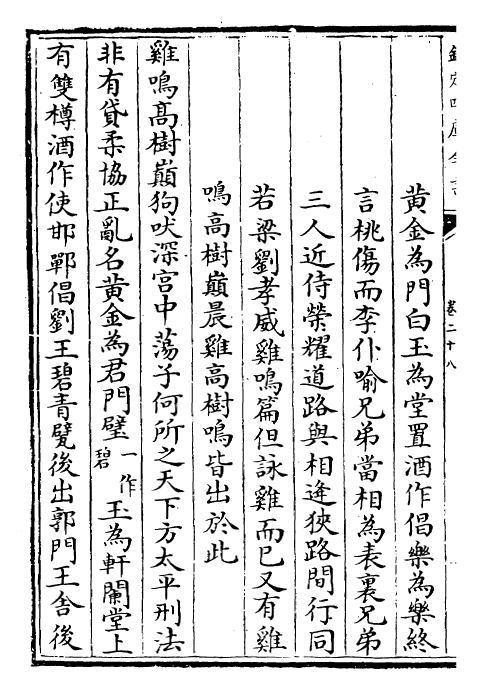 欽定四庫全書
卷二十八
黄金為門白玉為堂置酒作倡樂為樂終
言桃傷而李仆喻兄弟當相為表裏兄弟
三人近侍榮耀道路與相逢狹路間行同
若梁劉孝威雞鳴篇但詠雞而已又有雞
鳴高樹巔晨雞高樹鳴皆出於此
雞鳴髙樹巔狗吠深宫中蕩子何所之天下方太平刑法
非有貸柔協正亂名黄金為君門璧一作碧玉為軒闌堂上
有雙樽酒作使邯鄲倡劉王碧青甓後出郭門王舍後